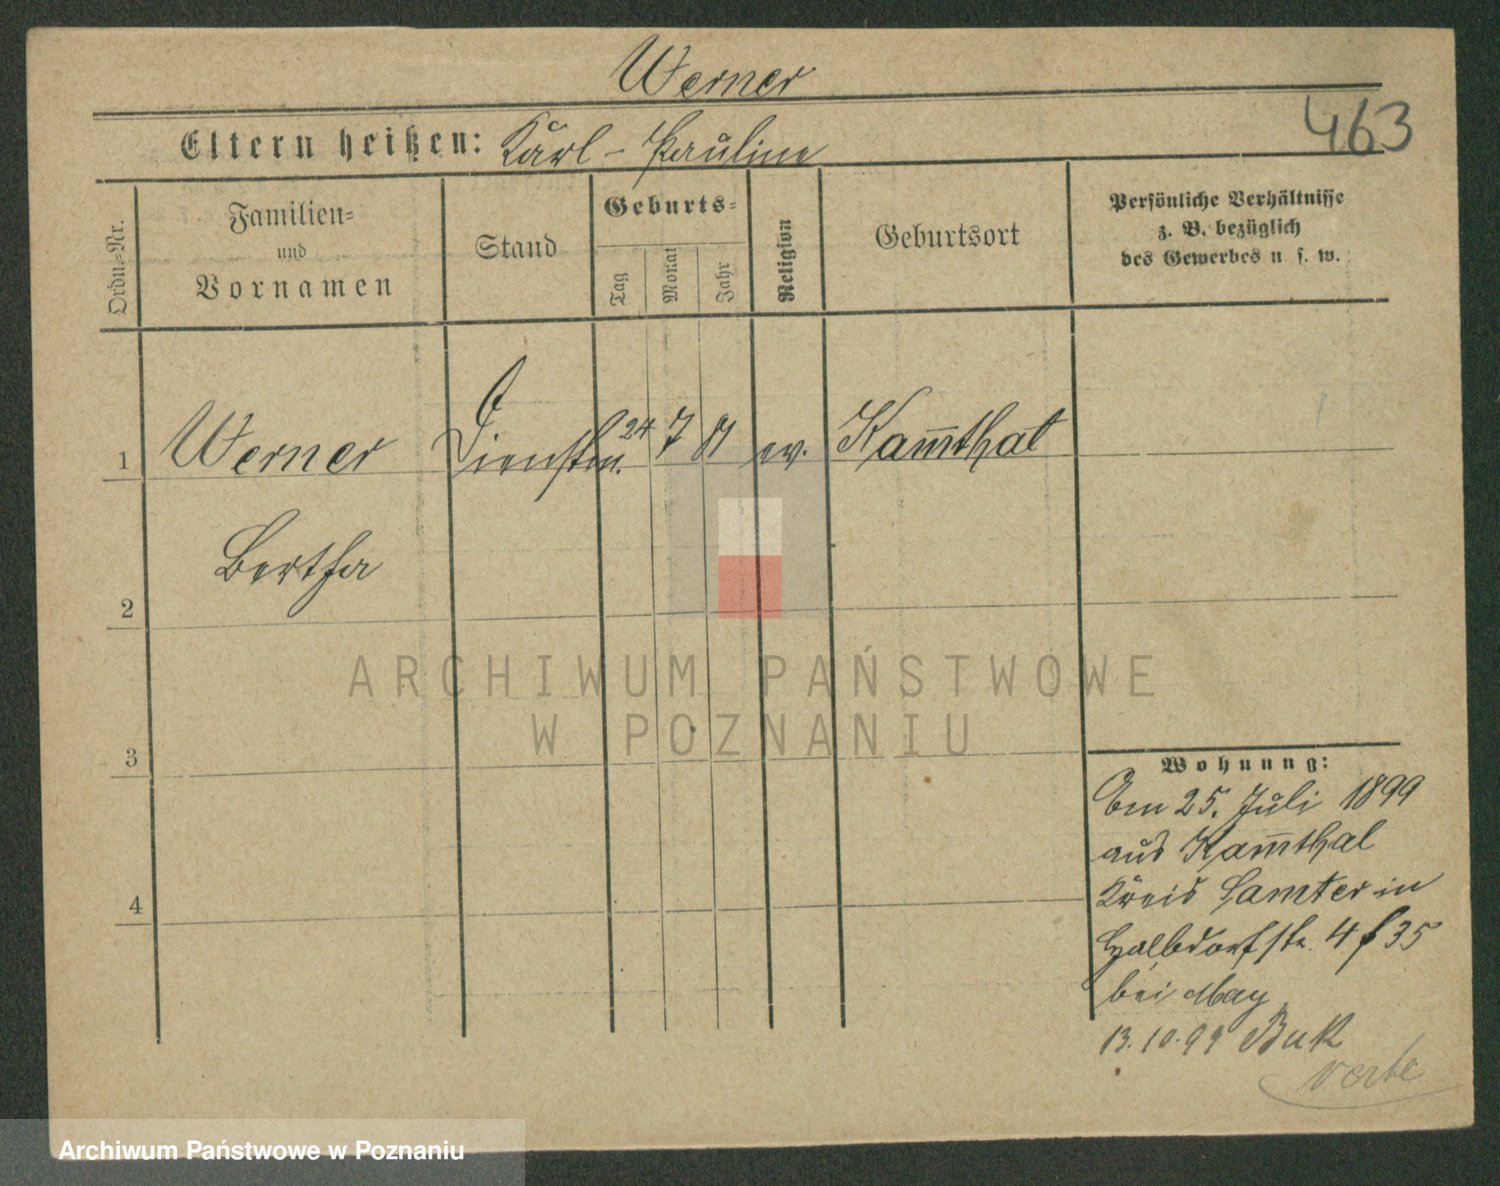 Werner
463
Eltern heißen: Karl - Pauline
Ordn=Nr.
Familien=
und
Vornamen
Stand
Geburts=
Tag
Monat
Jahr
Religion
Geburtsort
Persönliche Verhältnisse
z. B. bezüglich
des Gewerbes u. s. w.
1 Werner Dienstm. 24 7 81 ev. Kam̅thal
Bertha
2
ARCHIWUM PAŃSTWOWE
W POZNANIU
3
4
Wohnung:
Am 25. Juli 1899
aus Kam̅thal
Kreis Samter in
Halbdorfstr. 4 f 35
bei May
13.10.99 Buk
verte
Archiwum Państwowe w Poznaniu